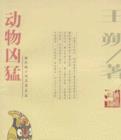 王朔/著
动物凶猛